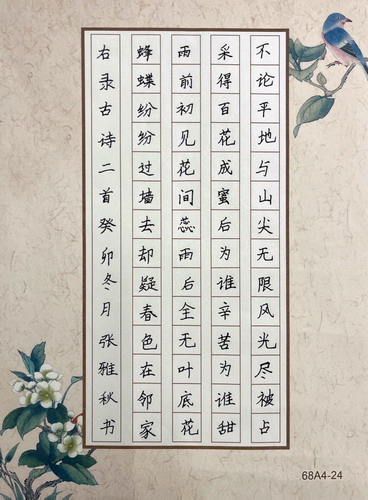 不论平地与山尖无限风光尽被占
采得百花成蜜后为谁辛苦为谁甜
雨前初见花间蕊雨后全无叶底花
蜂蝶纷纷过墙去却疑春色在邻家
右录古诗二首癸卯冬月张雅秋书
68A4-24